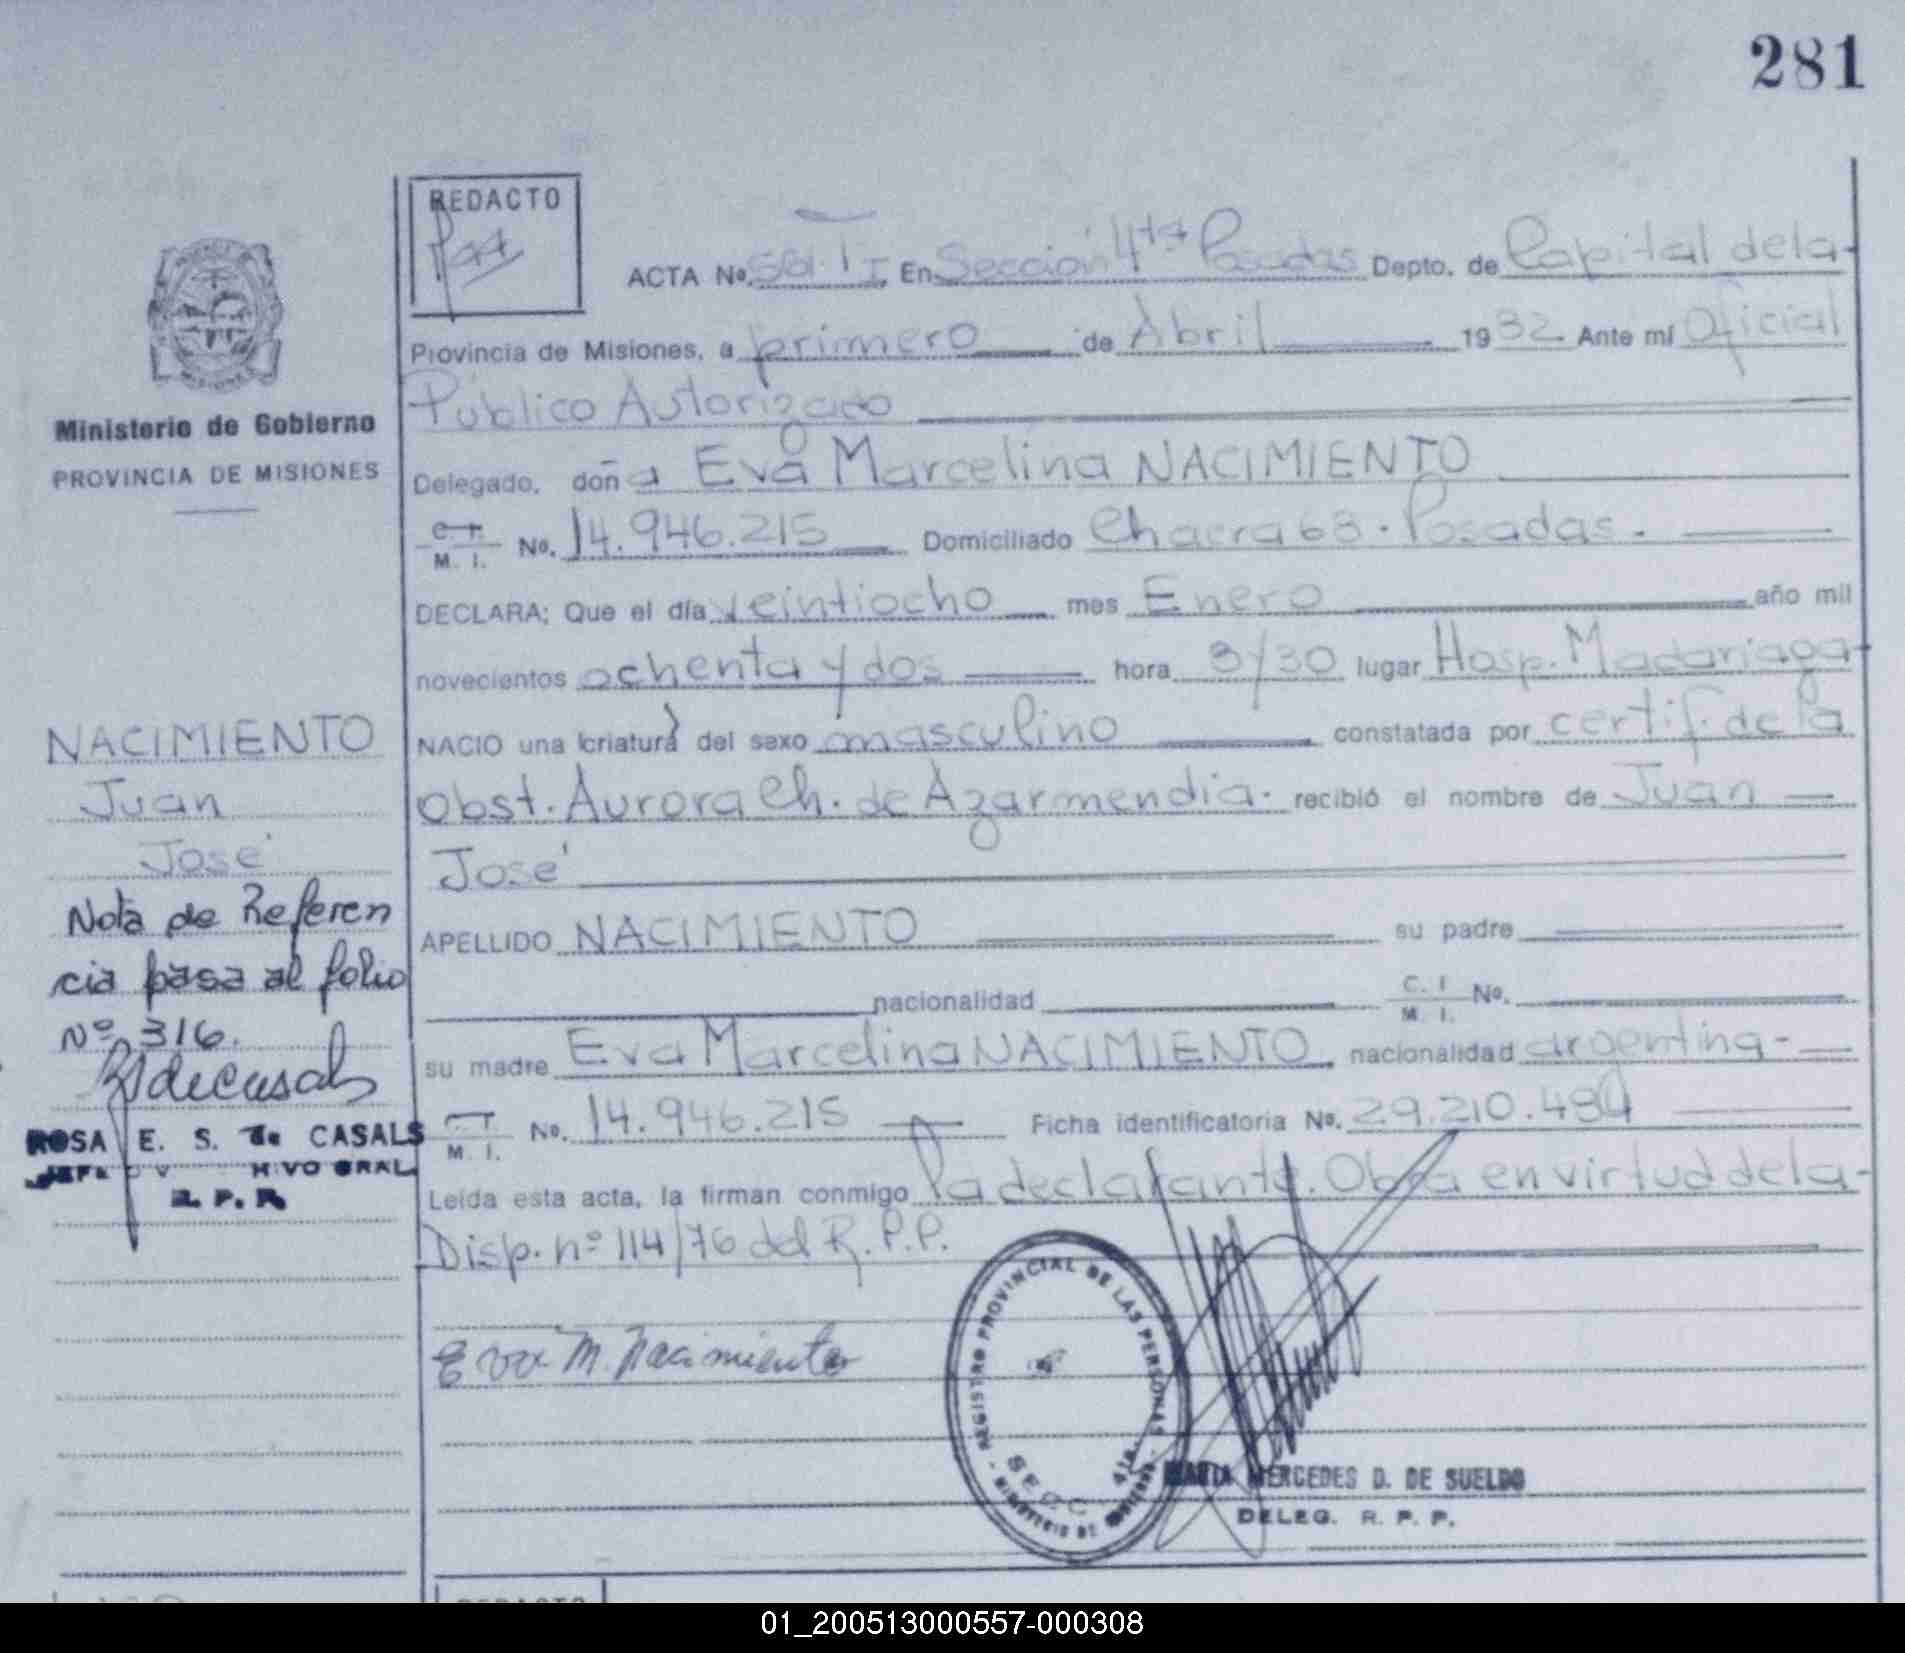 281
REDACTO
ACTA No. I En Sección 4ta Posadas Depto. de Capital de la-
Provincia de Misiones, a primero de Abril 1982 Ante mí Oficial
Público Autorizado
Ministerio de Gobierno
PROVINCIA DE MISIONES
Delegado, doña Eva Marcelina NACIMIENTO
C. I. M. I. No. 14.946.215 Domiciliado Chacra 63. Posadas.-
DECLARA; Que el día veintiocho mes Enero año mil
novecientos ochenta y dos hora 3/30 lugar Hosp. Madariaga-
NACIO una criatura del sexo masculino constatada por certif. de la
Obst. Aurora Ch. de Azarmendia. recibió el nombre de Juan
José
APELLIDO NACIMIENTO su padre
nacionalidad C. I M. I. No.
su madre Eva Marcelina NACIMIENTO nacionalidad argentina-
C. I. M. I. No. 14.946.215 Ficha identificatoria No. 29.210.484
Leída esta acta, la firman conmigo la declarante. Obra en virtud de la-
Disp. nº 114/76 del R.P.P.
NACIMIENTO
Juan
José
Nota de Referen
cia pasa al folio
Nº 316.
ROSA E. S. de CASALS
R. P. P.
Eva M. Nacimiento
REGISTRO PROVINCIAL DE LAS PERSONAS - MINISTERIO DE GOBIERNO -
SECC. 4ta.
MARIA MERCEDES D. DE SUELDO
DELEG. R. P. P.
REDACTO
01_200513000557-000308